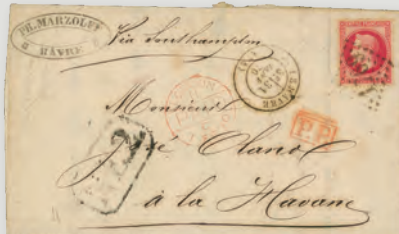 PH. MARZOLFF
HAVRE
Via Southampton
LE HAVRE
P.P.
Monsieur
José Olano
à la Havane